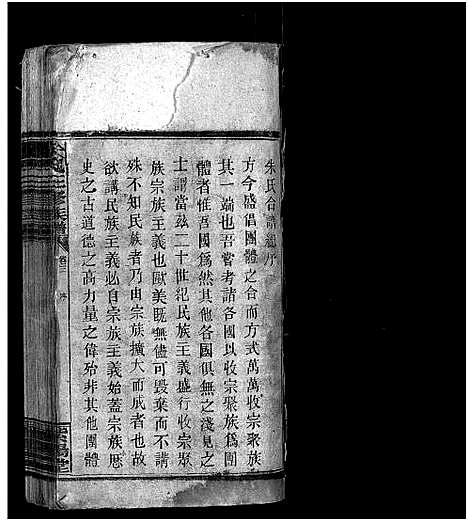 朱氏合譜總序
方今盛倡團體之合而方式萬萬收宗聚族
其一端也吾嘗考諸各國以收宗聚族爲團
體者惟吾國爲然其他各國俱無之淺見之
士謂當茲二十世紀民族主義盛行收宗聚
族宗族主義也歐美既無儘可毀棄而不講
殊不知民族者乃由宗族擴大而成者也故
欲講民族主義必自宗族主義始蓋宗族歷
史之古道德之高力量之偉殆非其他團體
卷三 序